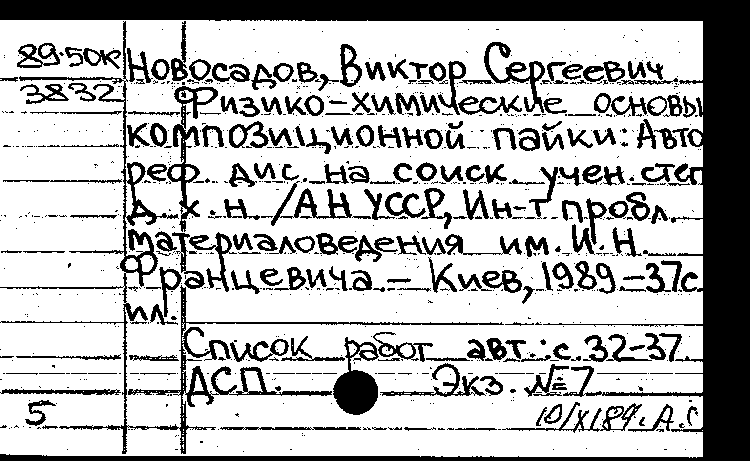 89-50к Новосадов, Виктор Сергеевич
3832 Физико-химические основы
композиционной пайки: Авто
реф. дис. на соиск. учен. степ
д. х. н. /АН УССР, Ин-т пробл.
материаловедения им. И. Н.
Францевича. – Киев, 1989. – 37с.
ил.
Список работ авт.: с. 32-37.
ДСП. Экз. №7
5 10/XI89г. А.С